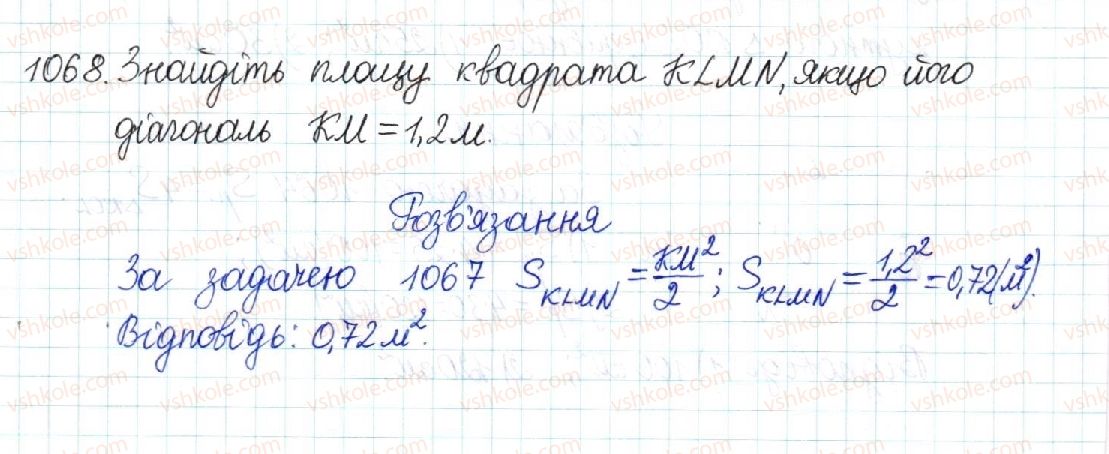 1068. Знайдіть площу квадрата KLMN, якщо його
діагональ KM = 1,2 м.
Розв'язання
За задачею 1067 S_KLMN = KM²/2; S_KLMN = 1,2²/2 = 0,72 (м²).
Відповідь: 0,72 м².